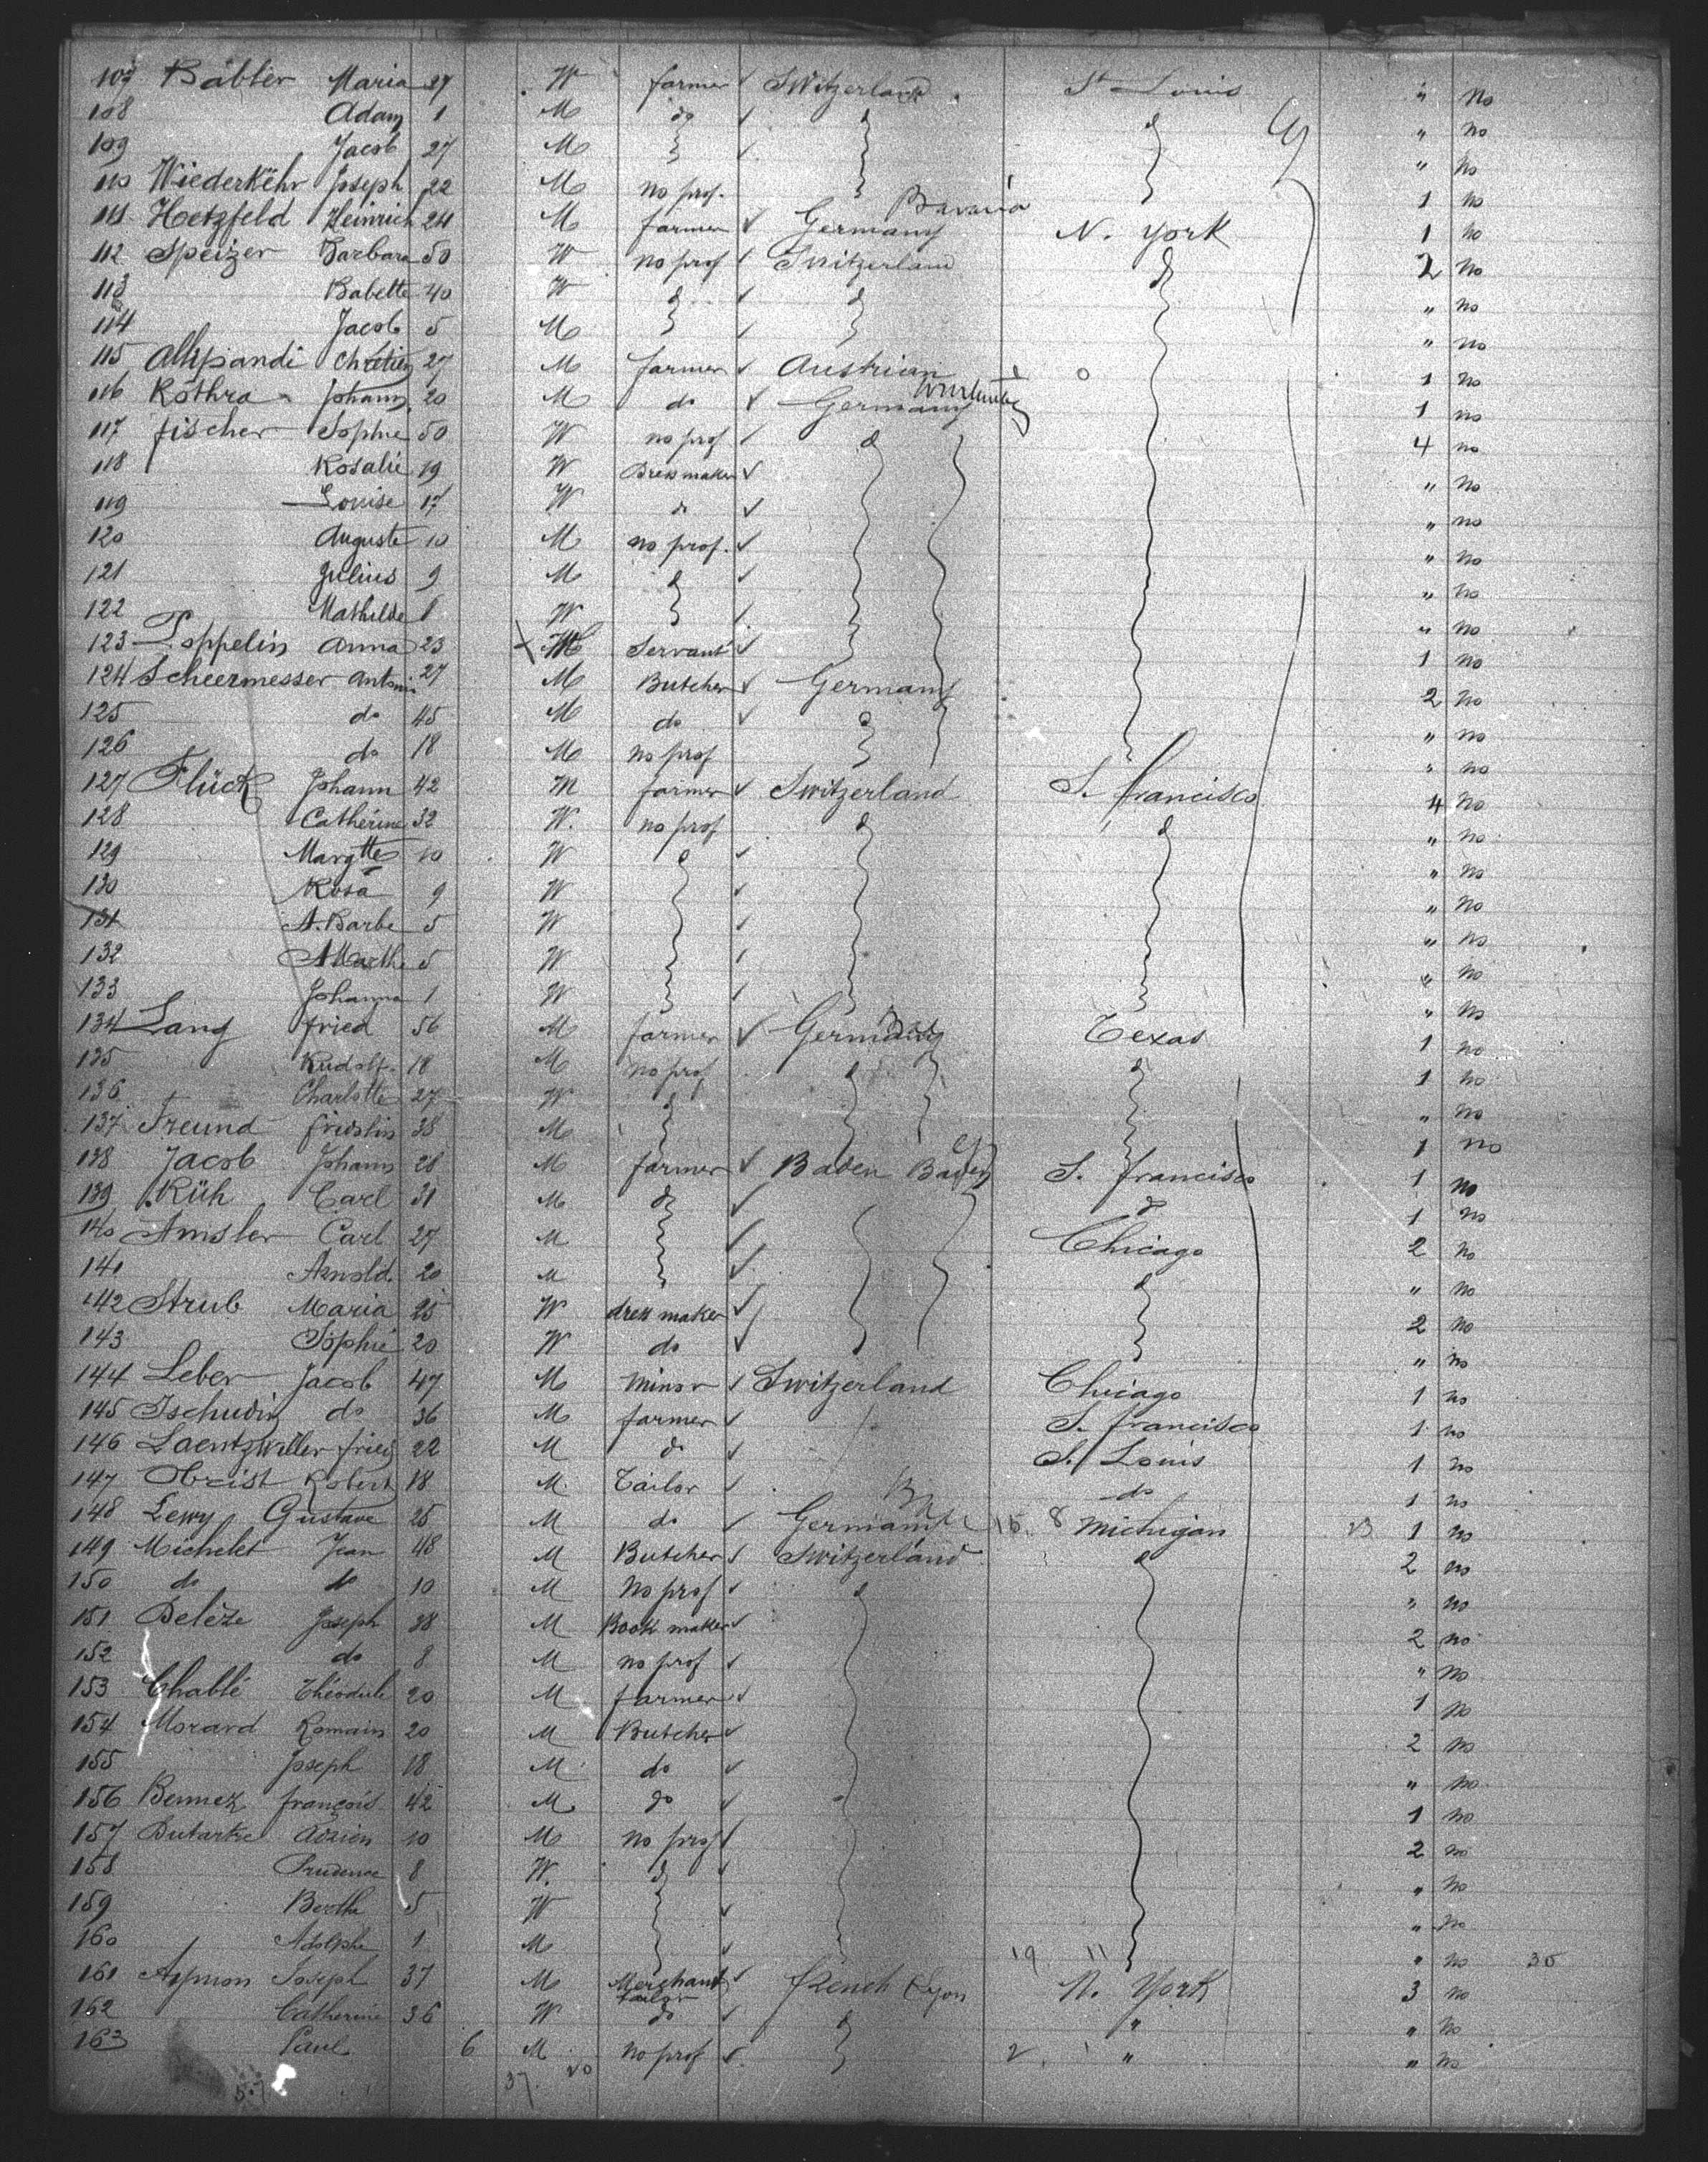 107 Bäbler Maria 27 W farmer ✓ Switzerland St Louis " no
108 Adam 1 M do ✓ " no
109 Jacob 27 M ✓ " no
110 Wiederkehr Joseph 22 M no prof. 1 no
111 Hetzfeld Heinrich 24 M farmer ✓ Germany Bavaria N. York 1 no
112 Speizer Barbara 50 W no prof ✓ Switzerland d 2 no
113 Babette 40 W d ✓ d " no
114 Jacob 5 M ✓ " no
115 Chrétien 27 M farmer ✓ Austrian 1 no
116 Rothra Johann 20 M do ✓ Germany 1 no
117 Fischer Sophie 50 W no prof ✓ d 4 no
118 Rosalie 19 W Dressmaker ✓ " no
119 Louise 17 W d ✓ " no
120 Auguste 10 M no prof. ✓ " no
121 Julius 9 M d ✓ " no
122 Mathilde W ✓ " no
123 Poppelin Anna 23 Servant ✓ 1 no
124 Scheermesser Antoni 27 M Butcher ✓ Germany 2 no
125 do 45 M do ✓ d " no
126 do 18 M no prof " no
127 Flück Johann 42 M farmer ✓ Switzerland S. Francisco 4 no
128 Catherine 32 W. no prof d d " no
129 Margtte 10 W d ✓ " no
130 Rosa 9 W ✓ " no
131 A. Barbe 5 W ✓ " no
132 A Marthe 5 W ✓ " no
133 Johanna 1 W ✓ " no
134 Lang Fried 56 M farmer ✓ Germany Texas 1 no
135 Rudolf 18 M no prof d d 1 no
136 Charlotte 27 W d " no
137 Freund Fridolin 38 M 1 no
138 Jacob Johann 28 M farmer ✓ Baden Baden S. Francisco 1 no
139 Küh Carl 31 M d ✓ d 1 no
140 Amsler Carl 27 M ✓ Chicago 2 no
141 Arnold 20 M ✓ d " no
142 Strub Maria 25 W dress maker ✓ 2 no
143 Sophie 20 W do ✓ " no
144 Leber Jacob 47 M Minor ✓ Switzerland Chicago 1 no
145 Tschudin do 36 M farmer ✓ S. Francisco 1 no
146 Laentzwiller Fried 22 M d ✓ S. Louis 1 no
147 Obrist Robert 18 M. Tailor ✓ do 1 no
148 Lewy Gustave 25 M do ✓ Germany 15. 8 Michigan 23 1 no
149 Michelet Jean 48 M Butcher ✓ Switzerland d 2 no
150 do do 10 M No prof ✓ d " no
151 Delèze Joseph 38 M Book maker ✓ 2 no
152 do 8 M no prof ✓ " no
153 Chablé Théodule 20 M farmer ✓ 1 no
154 Morard Romain 20 M Butcher ✓ 2 no
155 Joseph 18 M do ✓ " no
156 François 42 M do ✓ 1 no
157 Dutartre Adrien 10 M no prof ✓ 2 no
158 Prudence 8 W. d ✓ " no
159 Berthe 5 W ✓ " no
160 Adolphe 1 M ✓ 19 11 " no 35
161 Aymon Joseph 37 M Merchant tailor ✓ French Lyon N. York 3 no
162 Catherine 36 W do ✓ d " " no
163 Paul 6 M no prof ✓ 2. " " no
57 37. 20